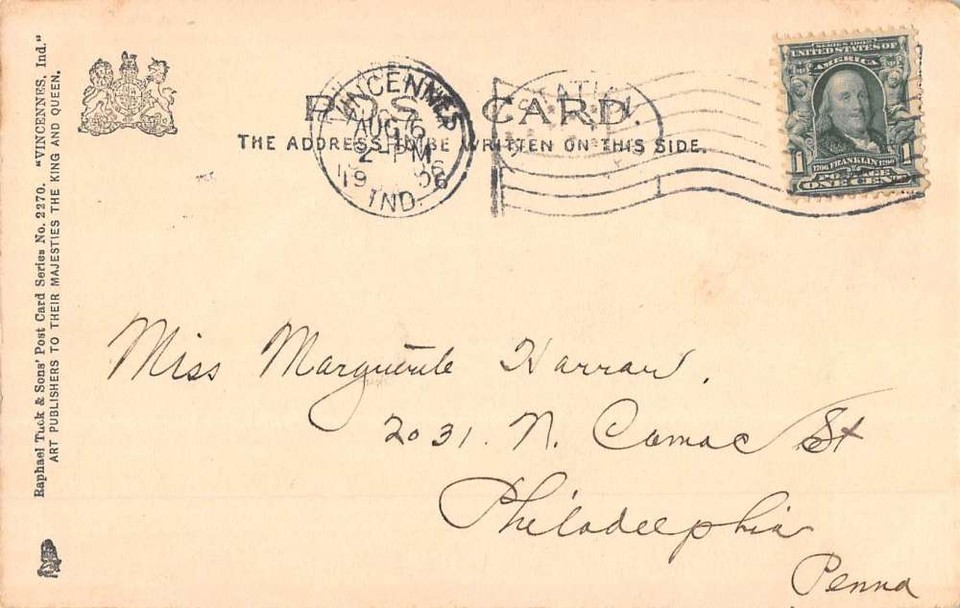 Raphael Tuck & Sons' Post Card Series No. 2270. "VINCENNES, Ind."
ART PUBLISHERS TO THEIR MAJESTIES THE KING AND QUEEN.
POST CARD.
THE ADDRESS TO BE WRITTEN ON THIS SIDE.
VINCENNES
AUG 16
2-PM
1906
IND.
STATION
SERIES 1902
UNITED STATES OF
AMERICA
1706 FRANKLIN 1790
1 1
POSTAGE
ONE CENT
Miss Marguerite Harrar.
2031. N. Camac St
Philadelphia
Penna